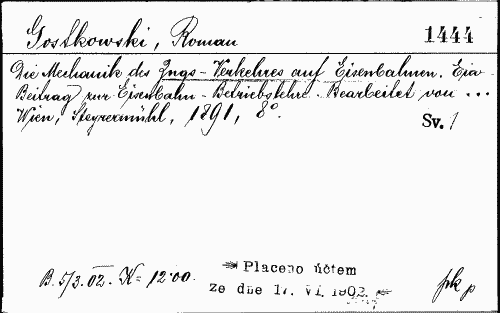 Gostkowski, Roman
1444
Die Mechanik des Zugs-Verkehres auf Eisenbahnen. Ein
Beitrag zur Eisenbahn-Betriebslehre. Bearbeitet von ...
Wien, Steyrermühl, 1891, 8°.
Sv. 1
B. 5/3. 02. K= 12·00.
Placeno účtem
ze dne 17. VI. 1902